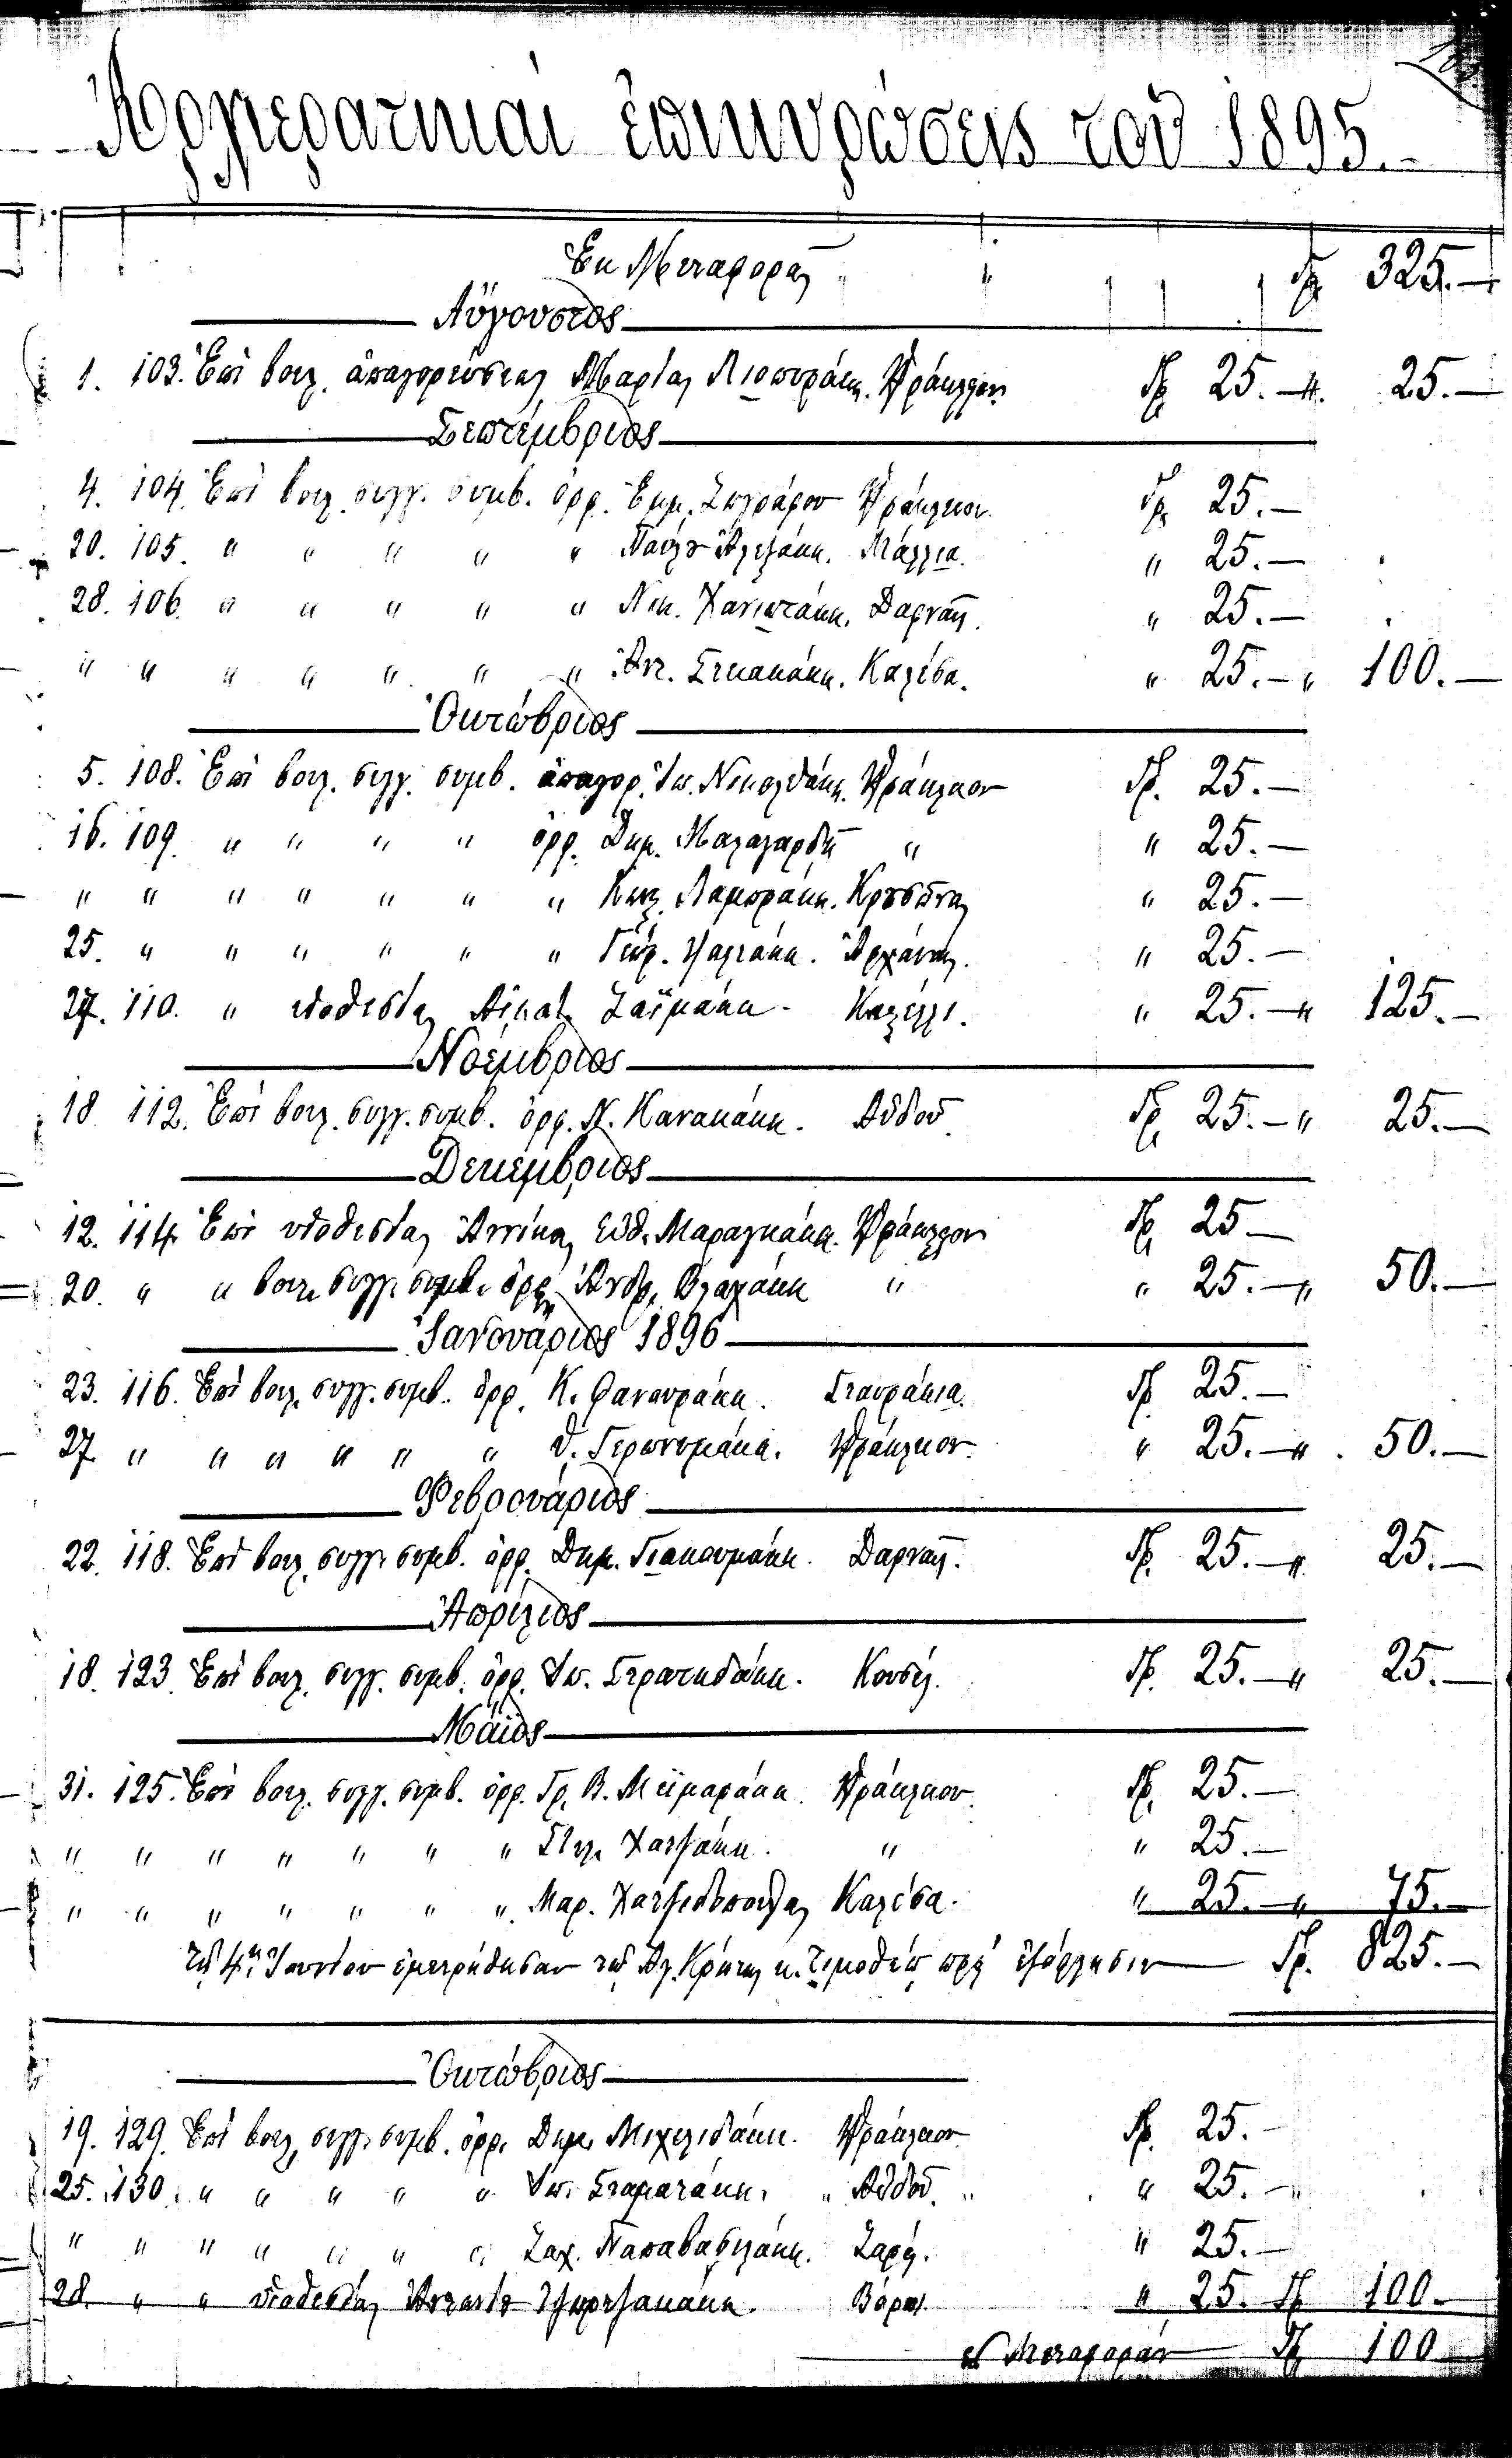 Ἀρχιερατικαί ἐπικυρώσεις τοῦ 1895.-
Ἐκ Μεταφορᾶς " " Γρ 325.-
Αὔγουστος
1. 103. Ἐπὶ βουλ. ἀπαγορεύσεως Μαρίας Λιοπυράκη. Ἡράκλειον Γρ 25.-". 25.-
Σεπτέμβριος
4. 104. Ἐπὶ βουλ. συγγ. συμβ. ὀρφ. Ἐμμ. Ζωγράφου Ἡράκλειον. Γρ 25.-
20. 105. " " " " " Παύλου Ἀλεξάκη. Μάλλια. " 25.-
28. 106. " " " " " Νικ. Χανιωτάκη. Δαφναῖς. " 25.-
" " " " " " " Ἀντ. Σηκακάκη. Καλέσα. " 25.-" 100.-
Ὀκτώβριος
5. 108. Ἐπὶ βουλ. συγγ. συμβ. ἀπαγορ. Ἰω. Νικολιδάκη. Ἡράκλειον Γρ. 25.-
16. 109. " " " " ὀρφ. Δημ. Μαλαγαρδῆ " " 25.-
" " " " " " " Κων. Λαμπράκη. Κρουσῶνας " 25.-
25. " " " " " " Γεωρ. Ψαλτάκη. Ἀρχάναις. " 25.-
27. 110. " υἱοθεσίας Αἰκατ. Ζαϊμάκη - Καστέλλι. " 25.-" 125.-
Νοέμβριος
18 112. Ἐπὶ βουλ. συγγ. συμβ. ὀρφ. Ν. Κανακάκη. Αὐδοῦ. Γρ 25.-" 25.-
Δεκέμβριος
12. 114. Ἐπὶ υἱοθεσίας Ἀννίκας Εὐθ. Μαραγκάκη. Ἡράκλειον Γρ 25-
20. " " βουλ. συγγ. συμβ. ὀρφ. Ἀνδρ. Βλαχάκη " " 25.-" 50.-
Ἰανουάριος 1896
23. 116. Ἐπὶ βουλ. συγγ. συμβ. ὀρφ. Κ. Φανουράκη. Σταυράκια. Γρ 25.-
27 " " " " " " Θ. Γερωνυμάκη. Ἡράκλειον. " 25.-". 50.-
Φεβρουάριος
22. 118. Ἐπὶ βουλ. συγγ. συμβ. ὀρφ. Δημ. Γιακουμάκη. Δαφναῖς. Γρ. 25.-" 25.-
Ἀπρίλιος
18. 123. Ἐπὶ βουλ. συγγ. συμβ. ὀρφ. Ἰω. Στρατηδάκη. Κουσές. Γρ. 25.-" 25.-
Μάϊος
31. 125. Ἐπὶ βουλ. συγγ. συμβ. ὀρφ. Γρ. Β. Μεϊμαράκη. Ἡράκλειον. Γρ. 25.-
" " " " " " " Στυλ. Χατζάκη. " " 25.-
" " " " " " ". Μαρ. Χατζιδοπούλας Καλέσα. " 25.-" 75.-
τῇ 4ῃ Ἰουνίου ἐμετρήθησαν τῷ Ἁγ. Κρήτης κ. Τιμοθέῳ πρὸς ἐξόφλησιν Γρ. 825.-
Ὀκτώβριος
19. 129. Ἐπὶ βουλ. συγγ. συμβ. ὀρφ. Δημ. Μιχελιδάκη. Ἡράκλειον. Γρ. 25.-
25. 130. " " " " " Ἰω. Σταματάκη. " Αὐδοῦ. " 25.-
" " " " " " " Ζαχ. Παπαβασιλάκη. Ζαρός. " 25.-
28. " " υἱοθεσίας Βόροι. " 25. Γρ 100-
εἰς Μεταφοράν Γρ 100